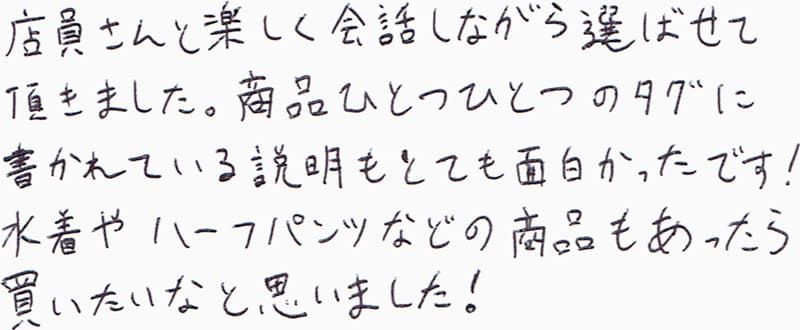 店員さんと楽しく会話しながら選ばせて
頂きました。商品ひとつひとつのタグに
書かれている説明もとても面白かったです!
水着やハーフパンツなどの商品もあったら
買いたいなと思いました!